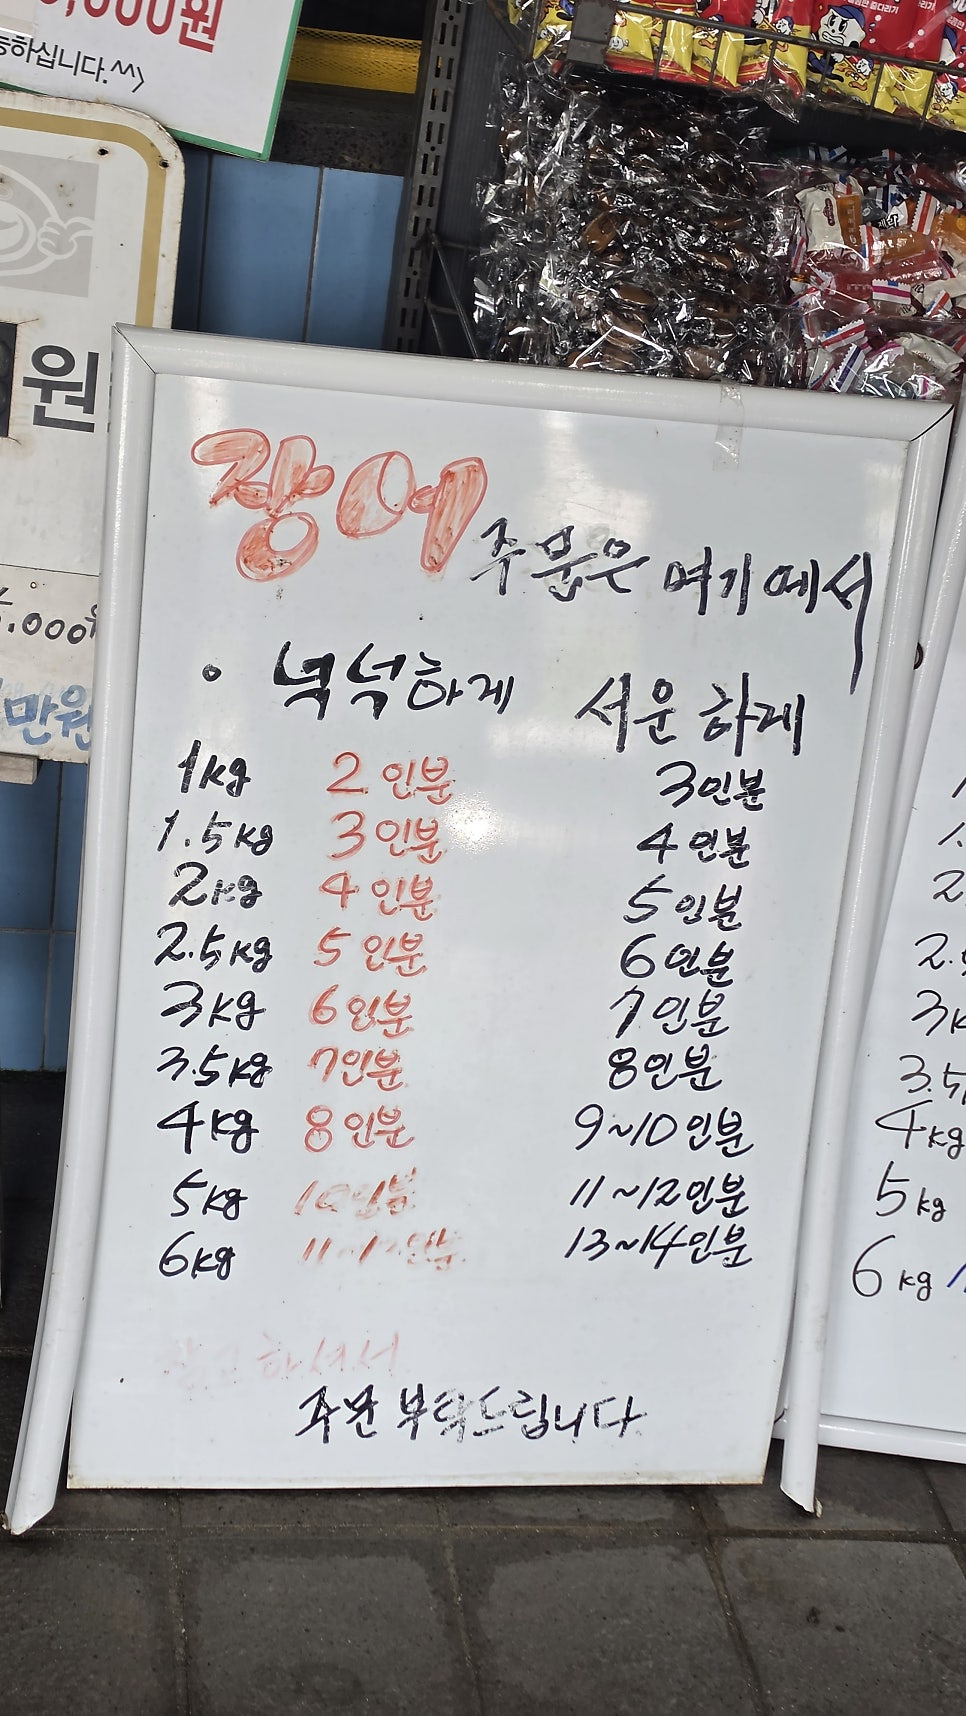 ,000원
능하십니다.^^>
원
.000원
만원
장어 주문은 여기에서
• 넉넉하게 서운하게
1kg 2인분 3인분
1.5kg 3인분 4인분
2kg 4인분 5인분
2.5kg 5인분 6인분
3kg 6인분 7인분
3.5kg 7인분 8인분
4kg 8인분 9~10인분
5kg 10인분 11~12인분
6kg 11~12인분 13~14인분
하셔서
주문 부탁드립니다
2
2.
3k
3.5
4kg
5kg
6kg